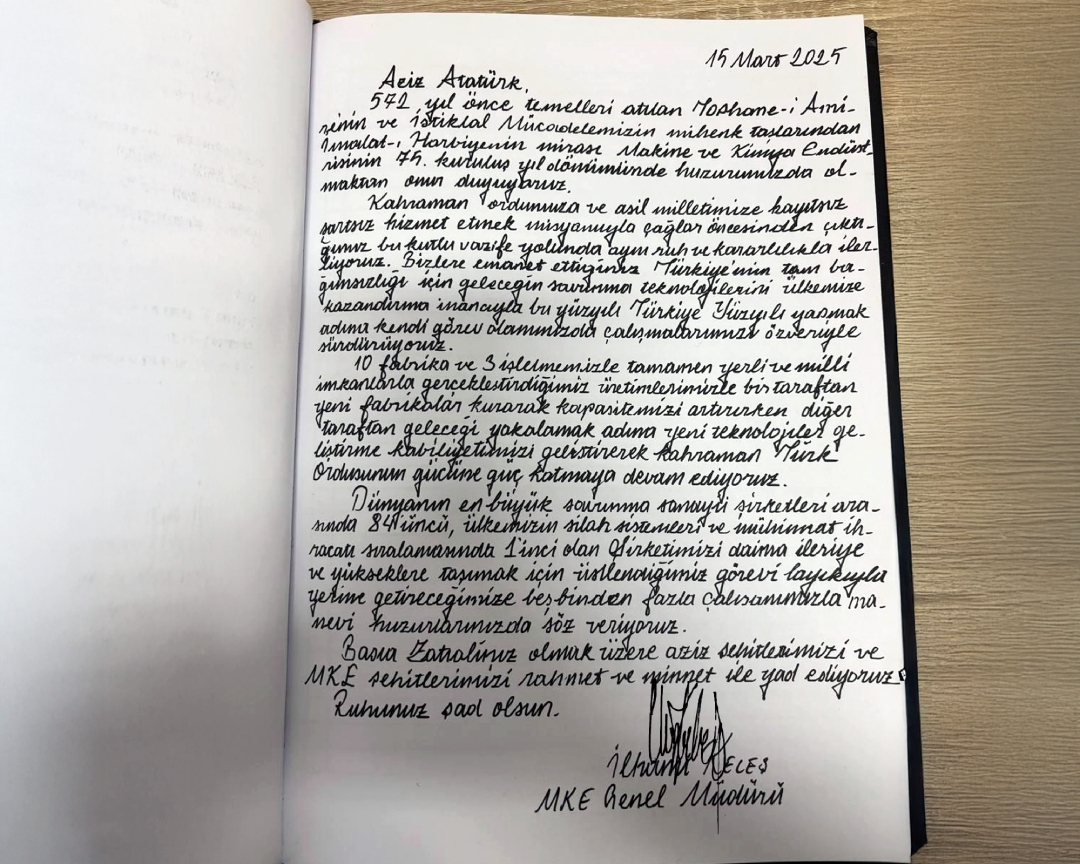 15 Mart 2025
Aziz Atatürk,
572 yıl önce temelleri atılan Tophane-i Ami-
renin ve İstiklal Mücadelemizin mihenk taşlarından
İmalat-ı Harbiyenin mirası Makine ve Kimya Endüst-
risinin 75. kuruluş yıl dönümünde huzurunuzda ol-
maktan onur duyuyoruz.
Kahraman ordumuza ve asil milletimize kayıtsız
şartsız hizmet etmek misyonuyla çağlar öncesinden çıktı-
ğımız bu kutlu vazife yolunda aynı ruh ve kararlılıkla iler-
liyoruz. Bizlere emanet ettiğiniz Türkiye'nin tam ba-
ğımsızlığı için geleceğin savunma teknolojilerini ülkemize
kazandırma inancıyla bu yüzyılı Türkiye Yüzyılı yapmak
adına kendi görev alanımızda çalışmalarımızı özveriyle
sürdürüyoruz.
10 fabrika ve 3 işletmemizle tamamen yerli ve milli
imkanlarla gerçekleştirdiğimiz üretimlerimizle bir taraftan
yeni fabrikalar kurarak kapasitemizi artırırken diğer
taraftan geleceği yakalamak adına yeni teknolojiler ge-
liştirme kabiliyetimizi geliştirerek kahraman Türk
Ordusunun gücüne güç katmaya devam ediyoruz.
Dünyanın en büyük savunma sanayii şirketleri ara-
sında 84'üncü, ülkemizin silah sistemleri ve mühimmat ih-
racatı sıralamasında 1'inci olan Şirketimizi daima ileriye
ve yükseklere taşımak için üstlendiğimiz görevi layıkıyla
yerine getireceğimize beşbinden fazla çalışanımızla ma-
nevi huzurlarınızda söz veriyoruz.
Başta Zatıaliniz olmak üzere aziz şehitlerimizi ve
MKE şehitlerimizi rahmet ve minnet ile yad ediyoruz.
Ruhunuz şad olsun.
İlhami KELEŞ
MKE Genel Müdürü